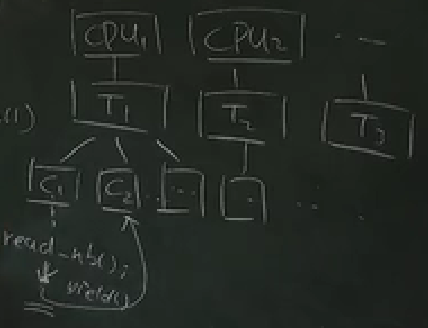 CPU₁ CPU₂ ...
T₁ T₂ T₃
C₁ C₂ ...
read_nb();
yield()